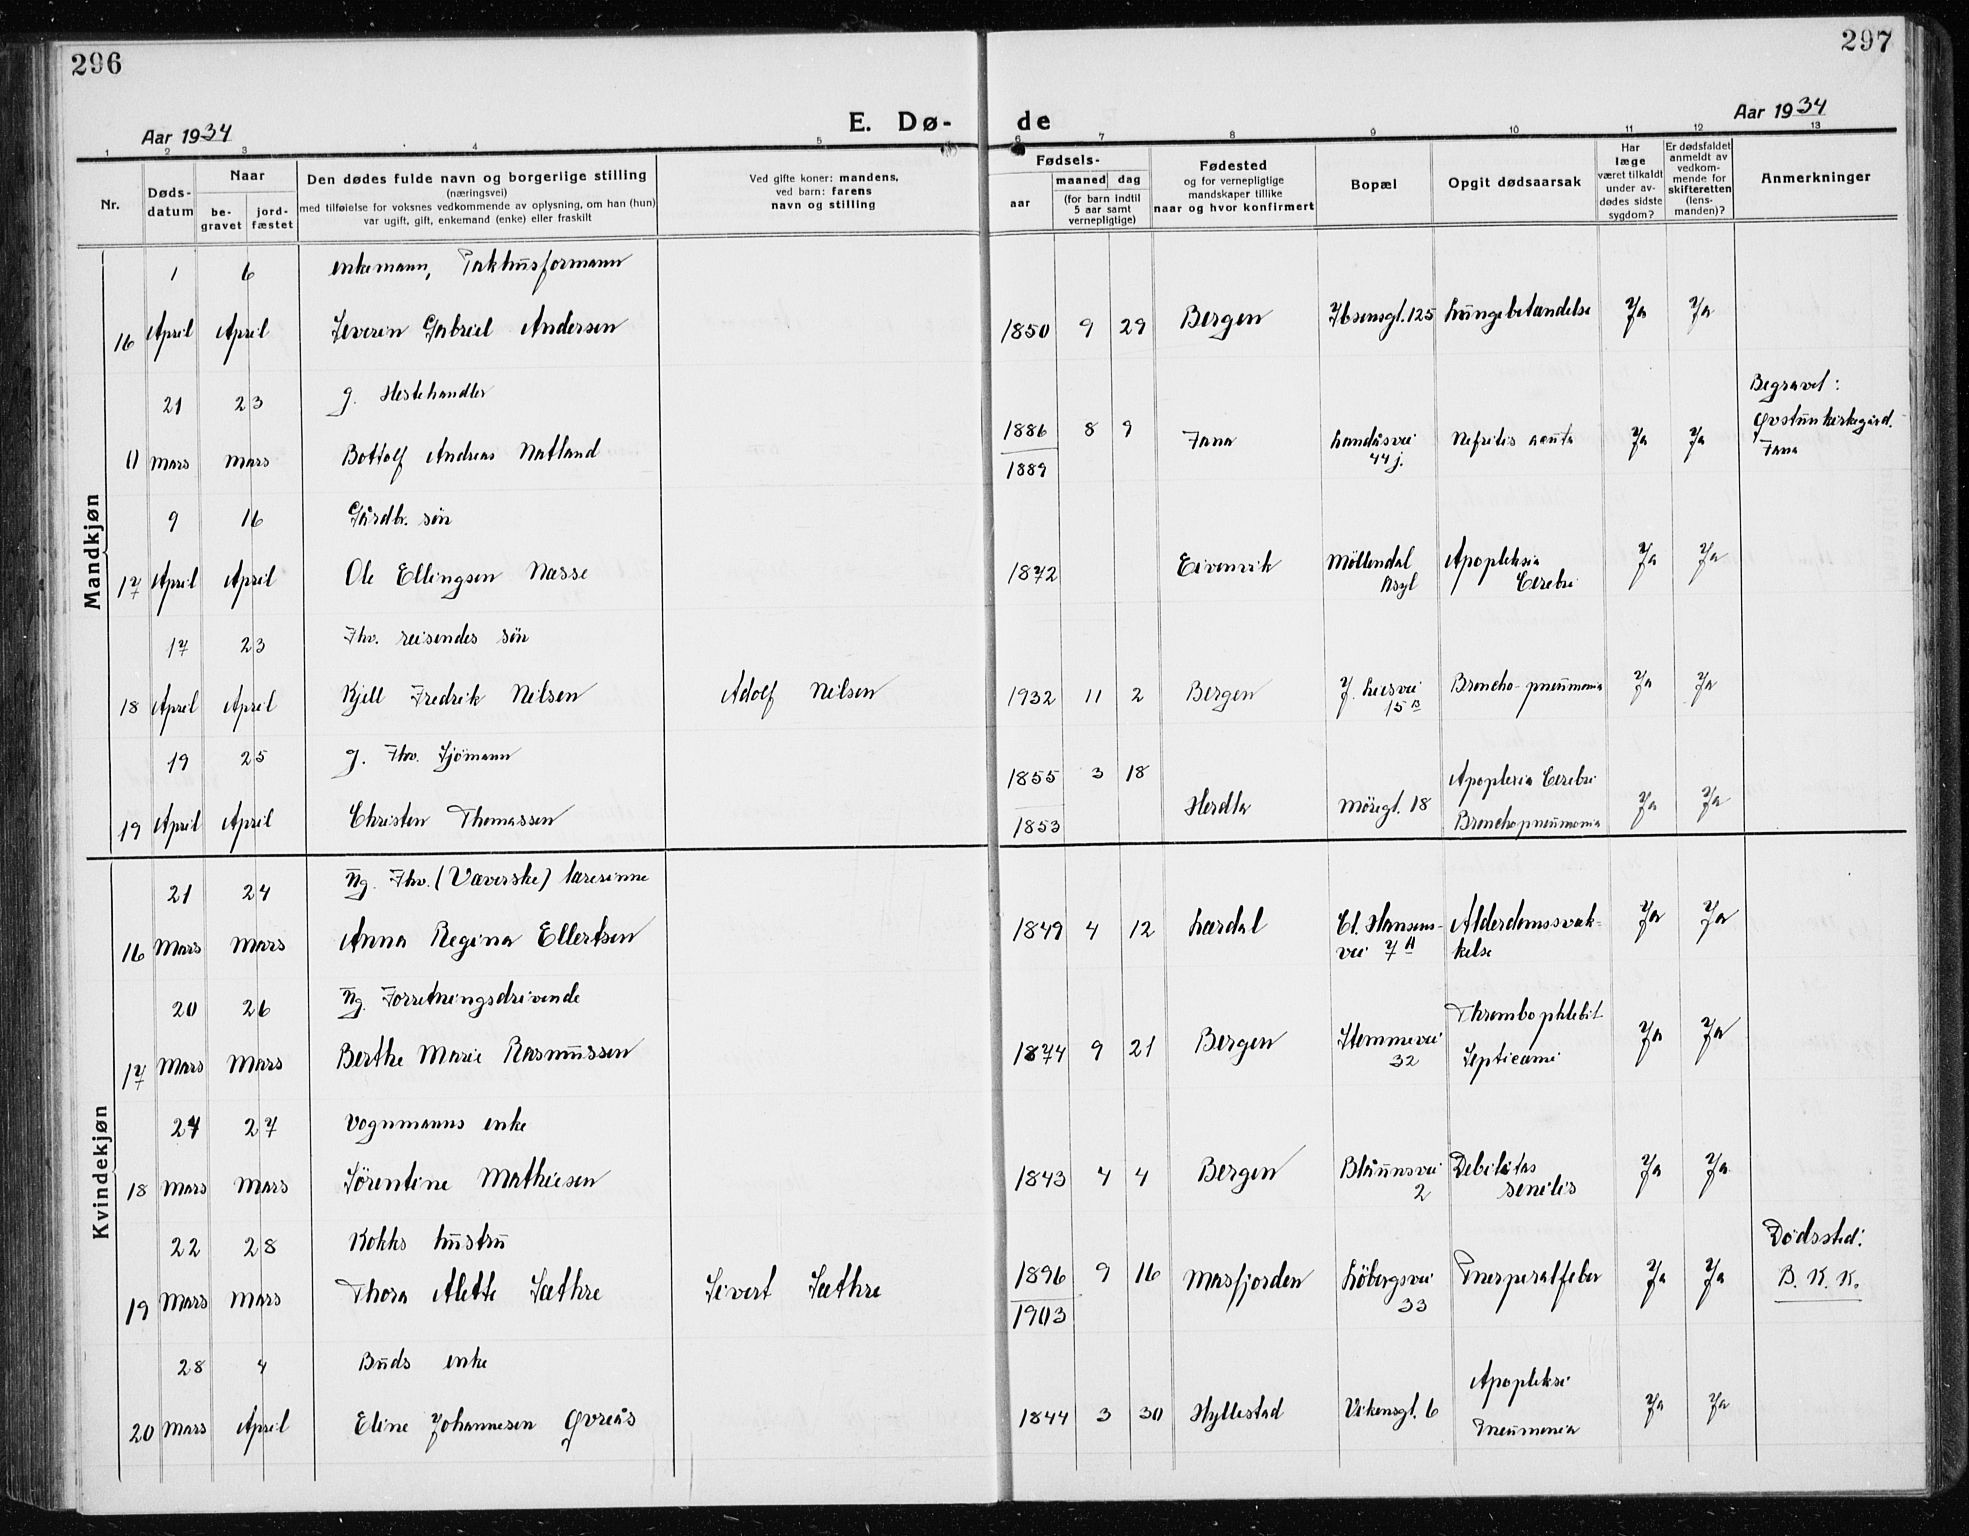 296
297
E. Dø- de
Aar 1934
Aar 1934
1 2 3 4 5 6 7 8 9 10 11 12 13
Nr.
Døds-
datum
Naar
be-
gravet
jord-
fæstet
Den dødes fulde navn og borgerlige stilling
(næringsvei)
med tilføielse for voksnes vedkommende av oplysning, om han (hun)
var ugift, gift, enkemand (enke) eller fraskilt
Ved gifte koner: mandens,
ved barn: farens
navn og stilling
Fødsels-
aar
maaned
dag
(for barn indtil
5 aar samt
vernepligtige)
Fødested
og for vernepligtige
mandskaper tillike
naar og hvor konfirmert
Bopæl
Opgit dødsaarsak
Har
læge
været tilkaldt
under av-
dødes sidste
sygdom?
Er dødsfaldet
anmeldt av
vedkom-
mende for
skifteretten
(lens-
manden)?
Anmerkninger
Mandkjøn
1 6 enkemann, Pakhusformann
16 April April Severin Gabriel Andersen 1850 9 29 Bergen Ibsensgt. 125 Lungebetandelse Ja Ja
21 23 g. Hestehandler
11 Mars Mars Bottolf Andreas Natland 1886 8 9 Fana Landåsvei Nefritis acuta Ja Ja
1889 44 j.
Begravet:
Øvstun kirkegård.
Fana
9 16 Gårdbr. søn
17 April April Ole Ellingsen Nasse 1872 Eivenvik Möllendal Apopleksia Ja Ja
Asyl Cerebri
17 23 Fhv. reisendes søn
18 April April Kjell Fredrik Nilsen Adolf Nilsen 1932 11 2 Bergen J. Liesvei Broncho-pneumonia Ja Ja
15 B
19 25 g. Fhv. Sjömann
1855 3 18 Apoplexia Cerebri
19 April April Christen Thomassen Herdla Möregt. 18 Ja Ja
1853 Bronchopneumonia
Kvindekjøn
21 24 Ug. Fhv. (Væverske) lærerinne
16 Mars Mars Anna Regina Ellertsen 1849 4 12 Lærdal Cl. Hansens- Alderdomssvæk- Ja Ja
vei 7 A kelse
20 26 Ug. Forretningsdrivende
17 Mars Mars Berthe Marie Rasmussen 1874 9 21 Bergen Stemmevei Thrombophlebit Ja Ja
32 Septicæmi
24 27 Vognmanns enke
18 Mars Mars Sørentine Mathiesen 1843 4 4 Bergen Blåunsvei Debilitas Ja Ja
2 senilis
22 28 Kokks hustru
19 Mars Mars Thora Alette Sæthre Sivert Sæthre 1896 9 16 Masfjorden Löbergsvei Puerperalfeber Ja Ja
1903 33
Dödssted:
B. K. K.
28 4 Buds enke
20 Mars April Eline Johannesen Øvreås 1844 3 30 Hyllestad Vikensgt. 6 Apopleksi Ja Ja
Pneumonia